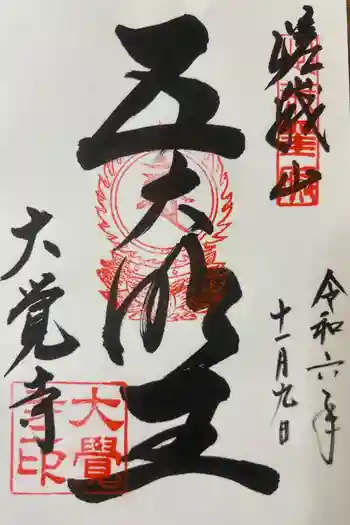 嵯峨山
令和六年
十一月九日
五大明王
大覚寺
大覺
寺印